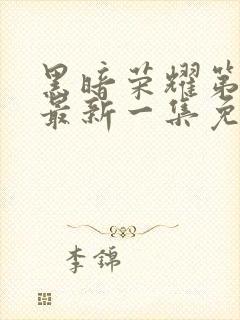 黑暗荣耀第
最新一集免
李锦